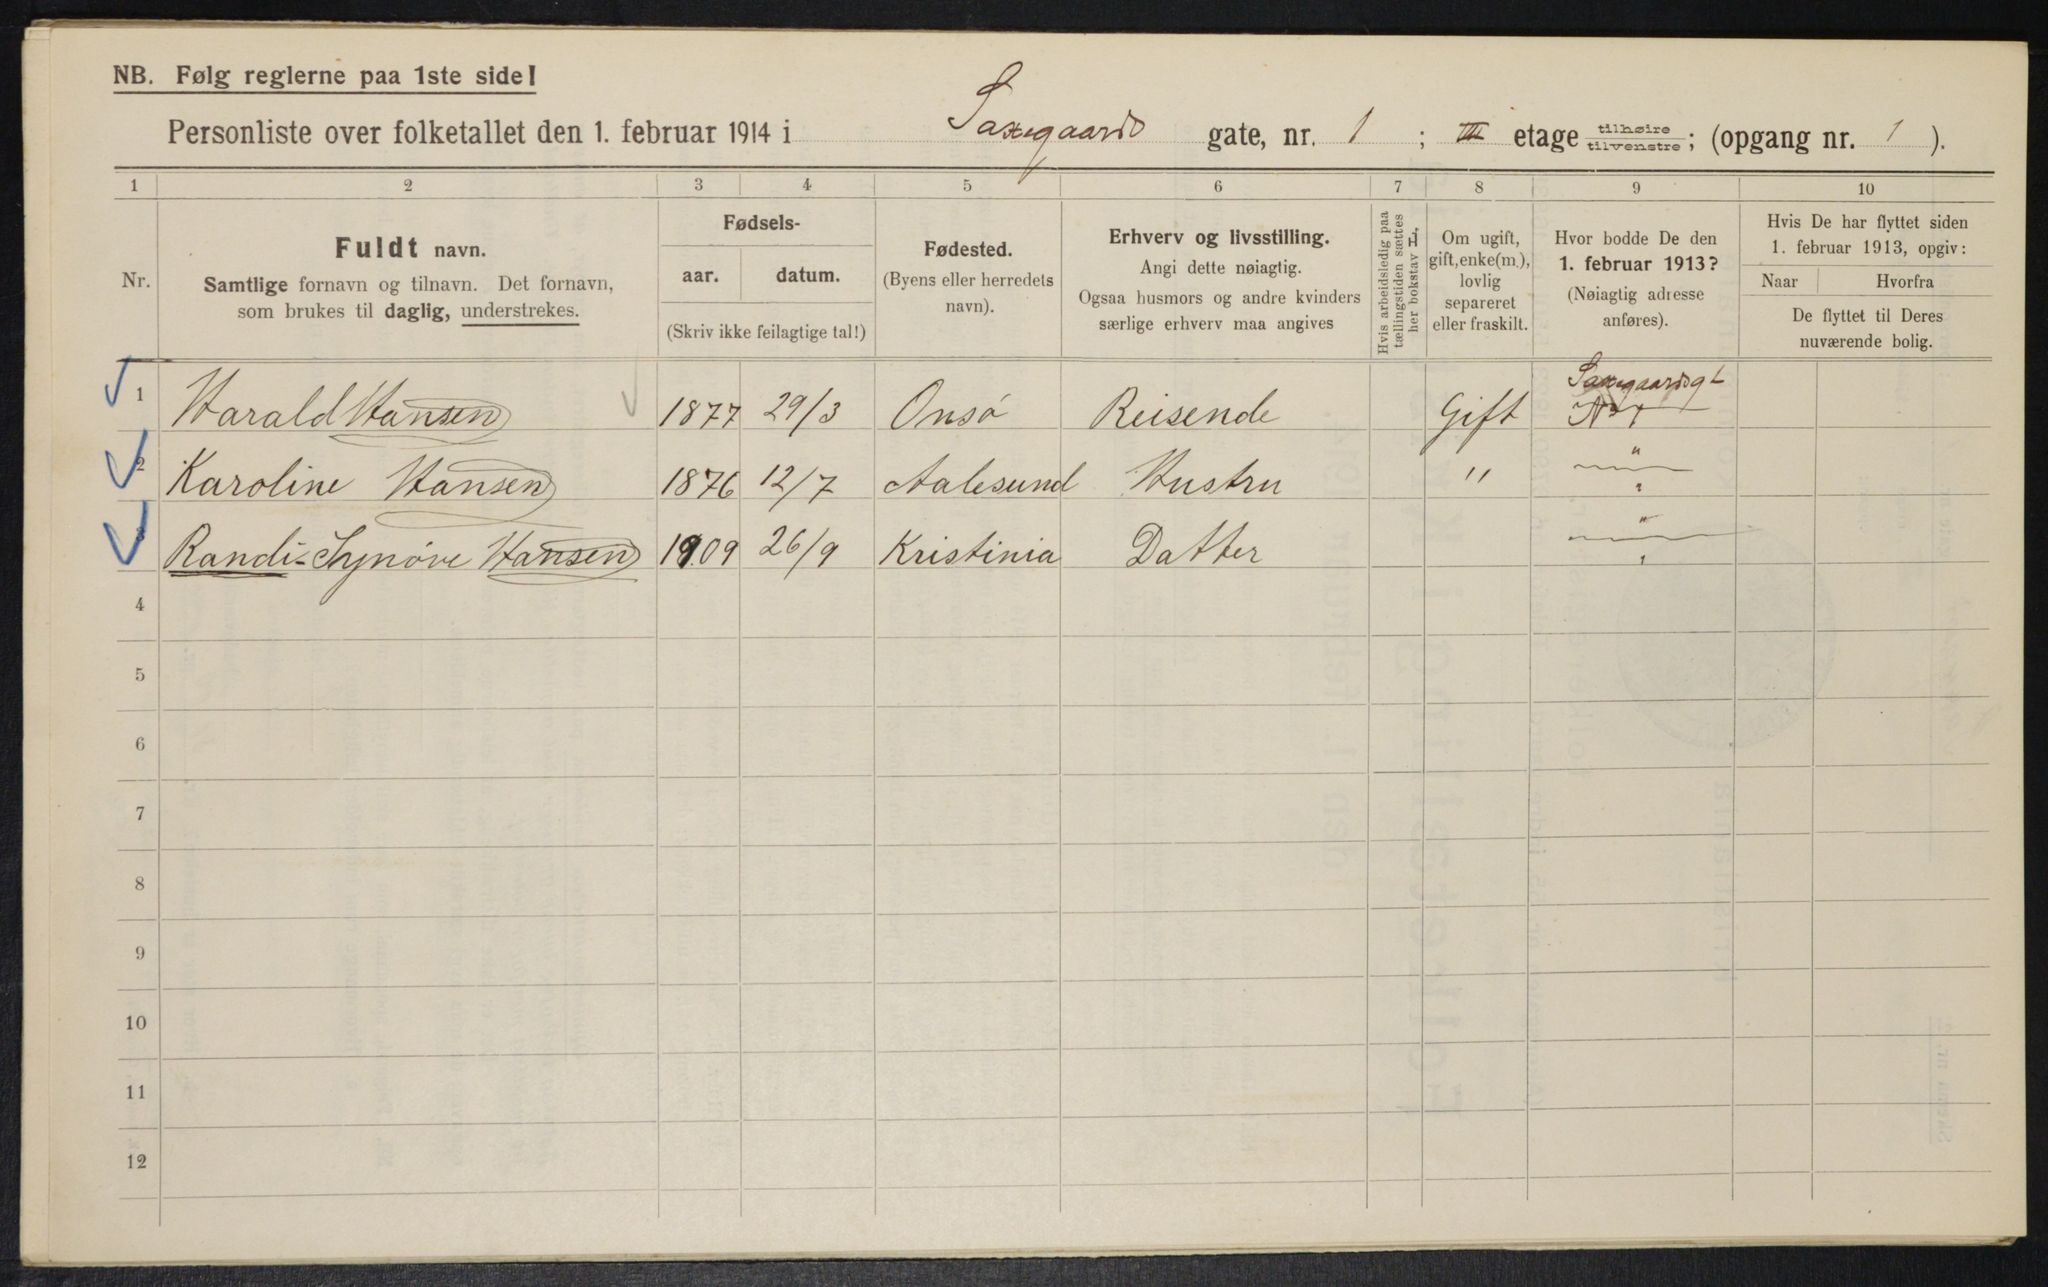 NB. Følg reglerne paa 1ste side!
Personliste over folketallet den 1. februar 1914 i Saxegaards gate, nr. 1 ; III etage tilhøire tilvenstre ; (opgang nr. 1 ).
1 2 3 4 5 6 7 8 9 10
Nr.
Fuldt navn.
Samtlige fornavn og tilnavn. Det fornavn,
som brukes til daglig, understrekes.
Fødsels-
aar. datum.
(Skriv ikke feilagtige tal!)
Fødested.
(Byens eller herredets
navn).
Erhverv og livsstilling.
Angi dette nøiagtig.
Ogsaa husmors og andre kvinders
særlige erhverv maa angives
Hvis arbeidsledig paa
tællingstiden sættes
her bokstav L.
Om ugift,
gift, enke(m.),
lovlig
separeret
eller fraskilt.
Hvor bodde De den
1. februar 1913?
(Nøiagtig adresse
anføres).
Hvis De har flyttet siden
1. februar 1913, opgiv:
Naar Hvorfra
De flyttet til Deres
nuværende bolig.
Saxegaardsgt
1 Harald Hansen 1877 29/3 Onsø Reisende Gift No 1
2 Karoline Hansen 1876 12/7 Aalesund Hustru " — " —
3 Randi-Synøve Hansen 1909 26/9 Kristinia Datter — " —
4
5
6
7
8
9
10
11
12